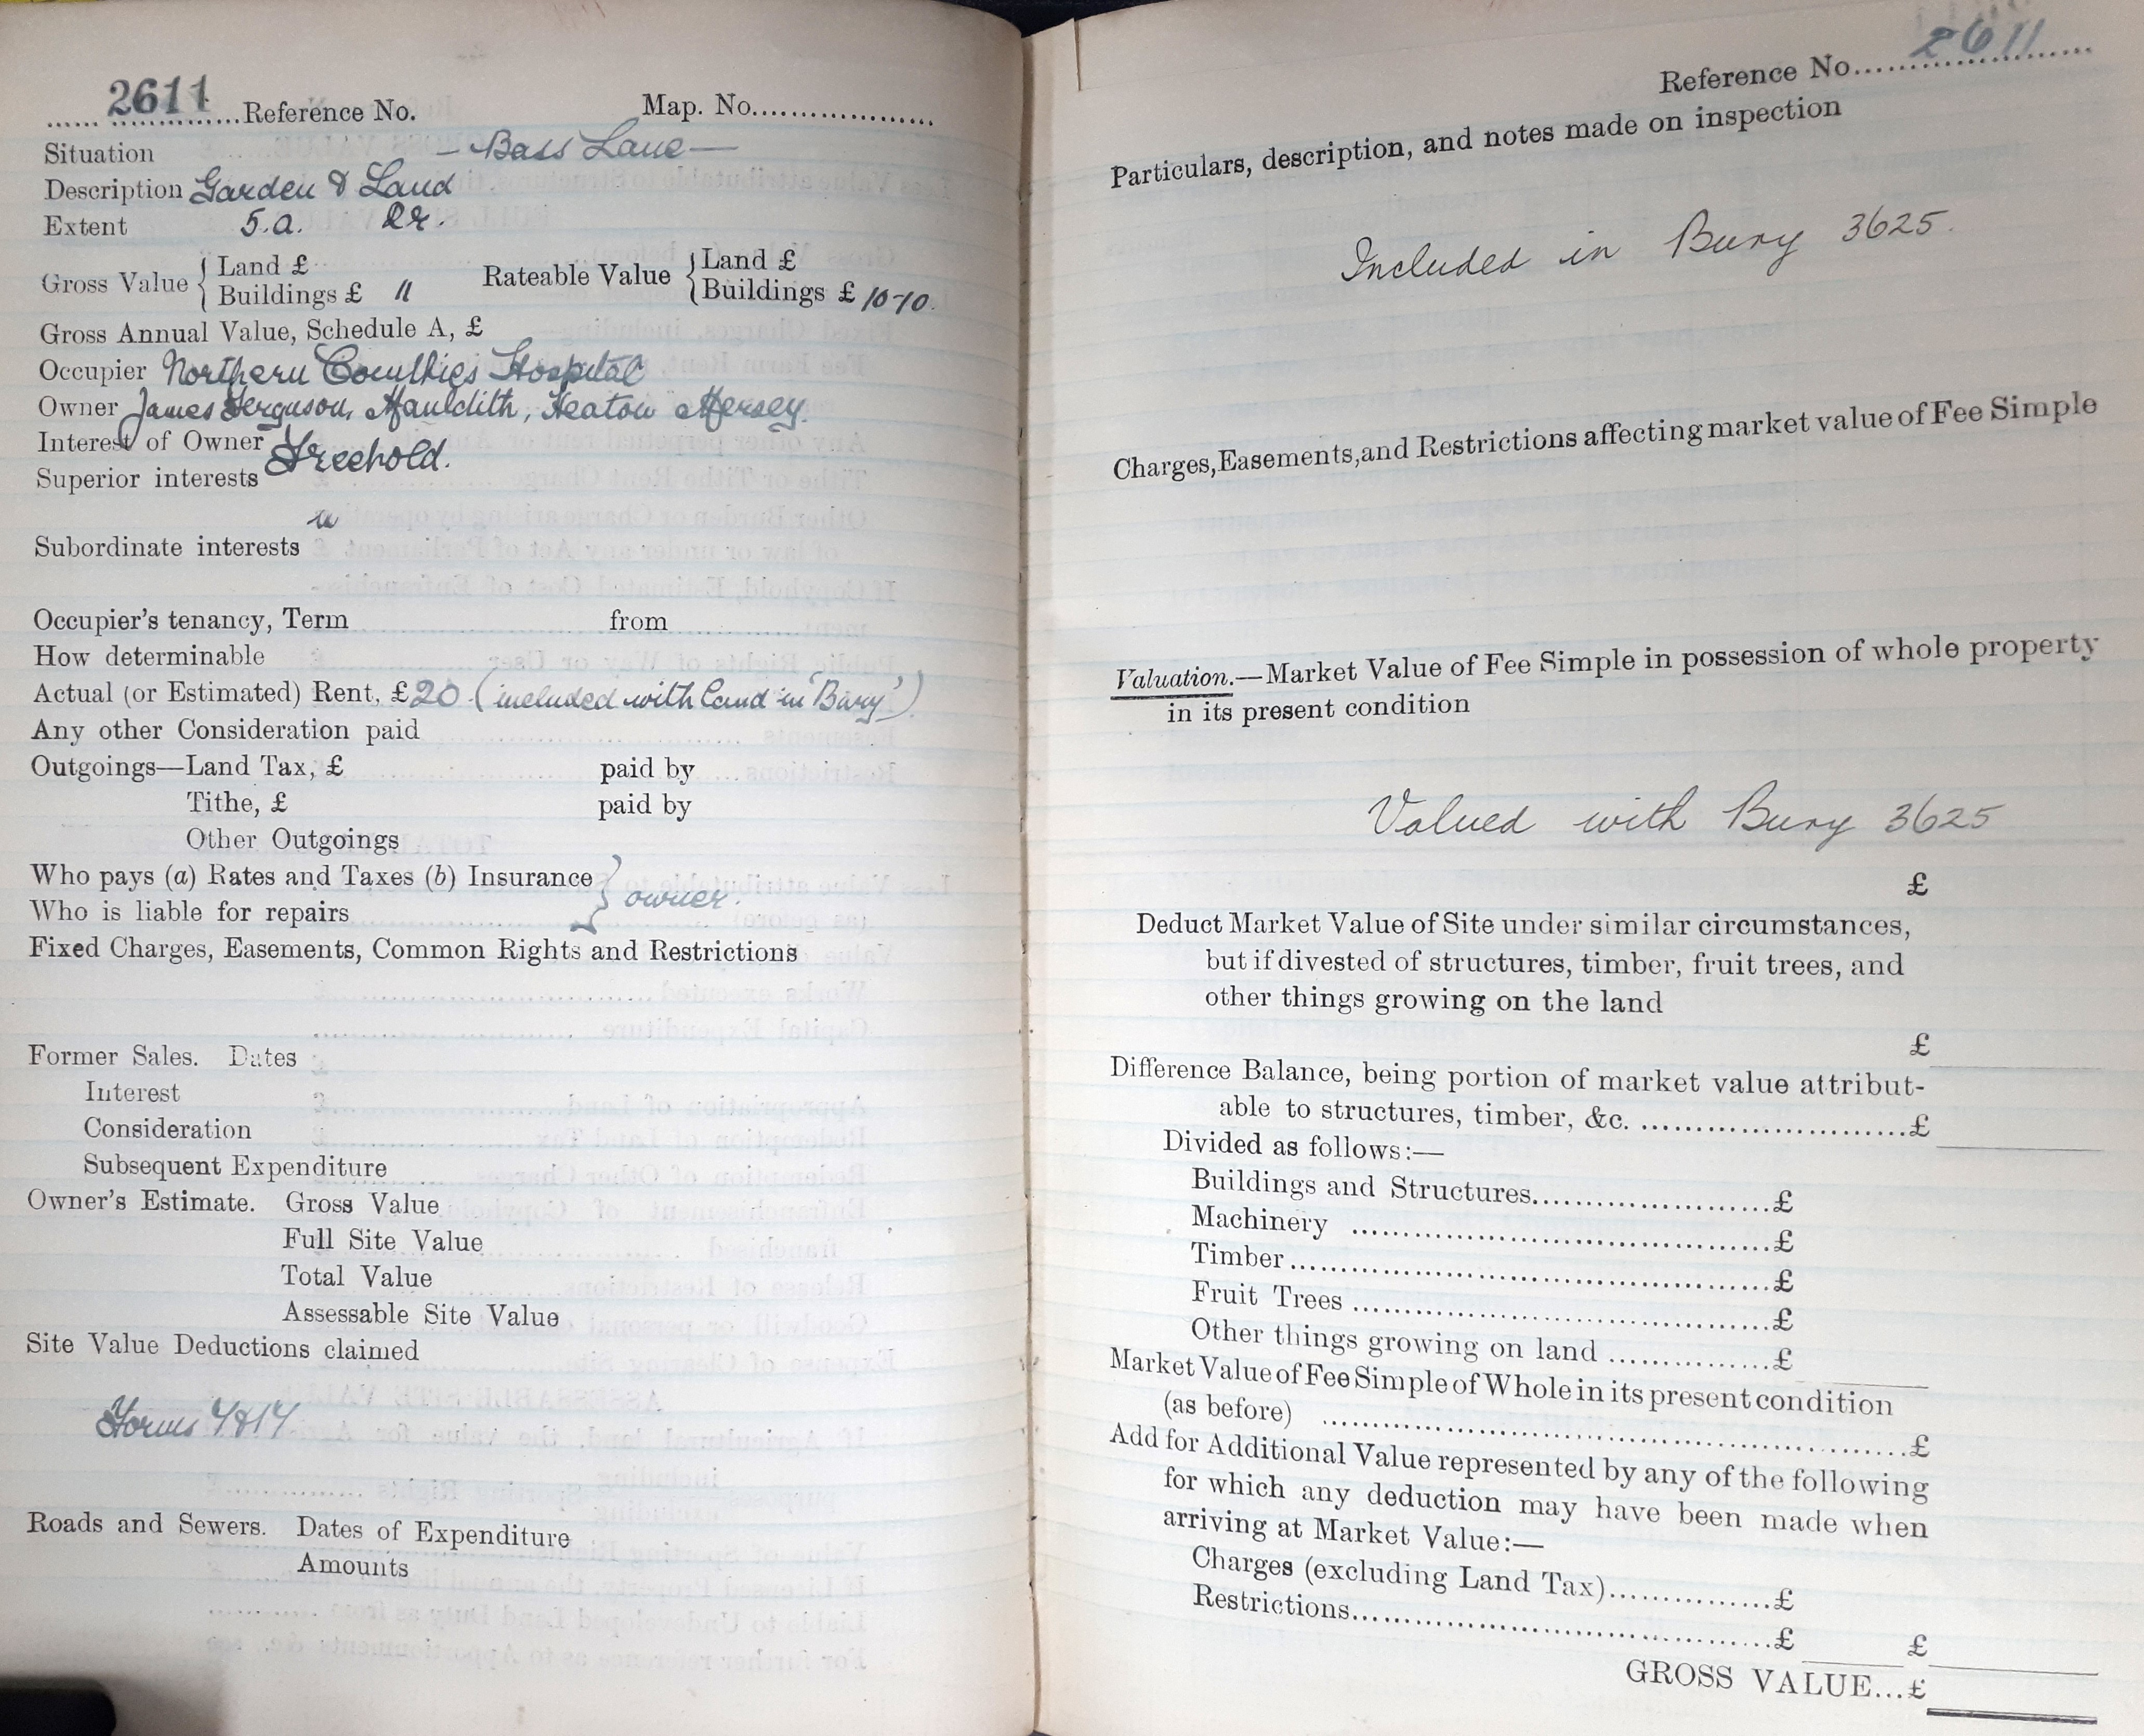 2611 Reference No. Map. No....................
Situation — Bass Lane —
Description Garden & Land
Extent 5.a. 2r.
Gross Value { Land £
Buildings £ 11
Rateable Value { Land £
Buildings £ 10-10.
Gross Annual Value, Schedule A, £
Occupier Northern Counties Hospital
Owner James Ferguson, Mauldith, Heaton Mersey.
Interest of Owner Freehold.
Superior interests
Subordinate interests
Occupier's tenancy, Term from
How determinable
Actual (or Estimated) Rent, £20 (included with land in 'Bury')
Any other Consideration paid
Outgoings—Land Tax, £ paid by
Tithe, £ paid by
Other Outgoings
Who pays (a) Rates and Taxes (b) Insurance } owner.
Who is liable for repairs
Fixed Charges, Easements, Common Rights and Restrictions
Former Sales. Dates
Interest
Consideration
Subsequent Expenditure
Owner's Estimate. Gross Value
Full Site Value
Total Value
Assessable Site Value
Site Value Deductions claimed
Forms 4 & 17
Roads and Sewers. Dates of Expenditure
Amounts
Reference No. 2611
Particulars, description, and notes made on inspection
Included in Bury 3625.
Charges, Easements, and Restrictions affecting market value of Fee Simple
Valuation.—Market Value of Fee Simple in possession of whole property
in its present condition
Valued with Bury 3625
£
Deduct Market Value of Site under similar circumstances,
but if divested of structures, timber, fruit trees, and
other things growing on the land
£
Difference Balance, being portion of market value attribut-
able to structures, timber, &c. ........................£
Divided as follows:—
Buildings and Structures........................£
Machinery ........................................£
Timber..............................................£
Fruit Trees ........................................£
Other things growing on land ..............£
Market Value of Fee Simple of Whole in its present condition
(as before) ........................................................£
Add for Additional Value represented by any of the following
for which any deduction may have been made when
arriving at Market Value:—
Charges (excluding Land Tax)..............£
Restrictions........................................£ £
GROSS VALUE...£